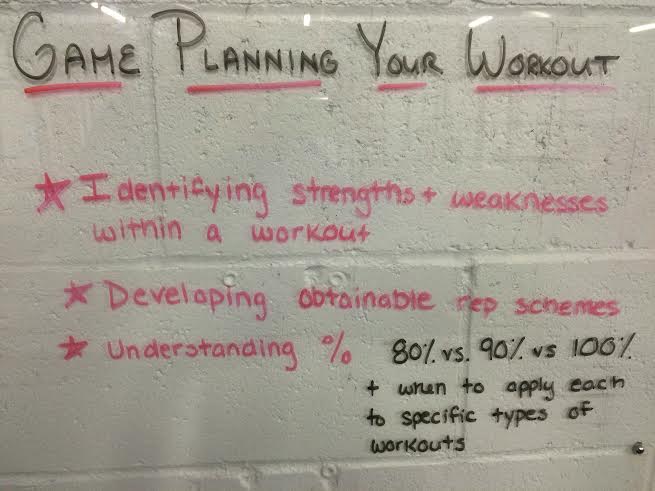 GAME PLANNING YOUR WORKOUT
★ Identifying strengths + weaknesses
within a workout
★ Developing obtainable rep schemes
★ Understanding % 80% vs. 90% vs 100%
+ when to apply each
to specific types of
workouts